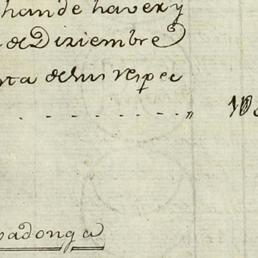 han de haver y
de Diziembre
ta de sus respec
" 10
adonga